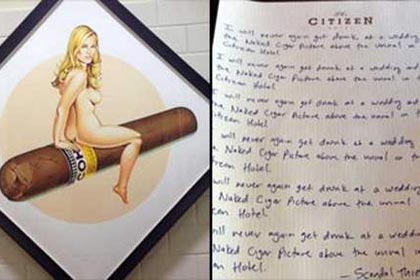 CITIZEN
I will never again get drunk at a wedding
the Naked Cigar Picture above the urinal
Citizen Hotel.
I will never again get drunk at a wedding and
the Naked Cigar Picture above the urinal
Citizen Hotel.
I will never again get drunk at a wedding
the Naked Cigar Picture above the urinal
Hotel.
will never again get drunk at a wedding
Naked Cigar Picture above the urinal
Hotel.
will never again get drunk at a wedding
Naked Cigar Picture above the urinal
Hotel.
will never again get drunk at a wedding
Naked Cigar Picture above the urinal
Hotel.
— Scandal